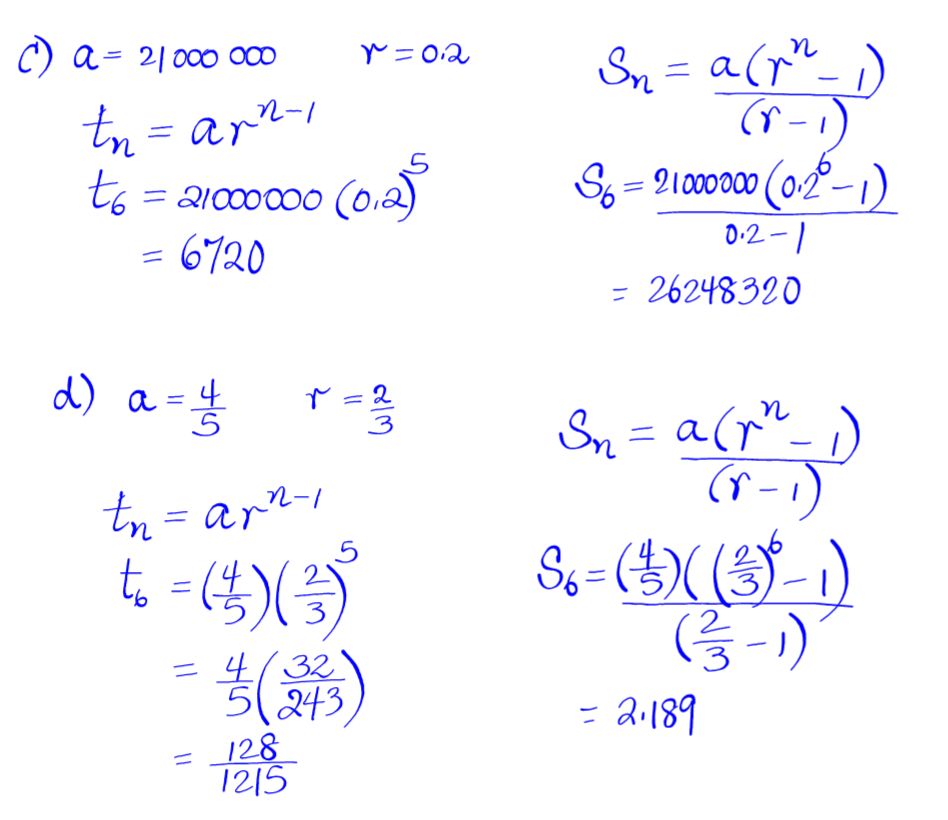 c) a = 21 000 000 r = 0.2
tₙ = arⁿ⁻¹
t₆ = 21000000 (0.2)⁵
= 6720
Sₙ = a(rⁿ - 1) / (r - 1)
S₆ = 21000000 (0.2⁶ - 1) / 0.2 - 1
= 26248320
d) a = 4/5 r = 2/3
tₙ = arⁿ⁻¹
t₆ = (4/5)(2/3)⁵
= 4/5 (32/243)
= 128/1215
Sₙ = a(rⁿ - 1) / (r - 1)
S₆ = (4/5)((2/3)⁶ - 1) / (2/3 - 1)
= 2.189